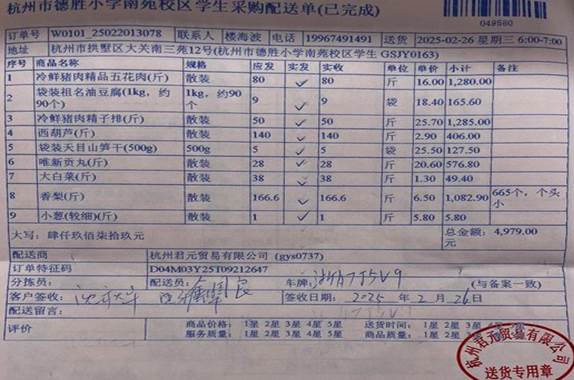 杭州市德胜小学南苑校区学生采购配送单(已完成)
049580
订单号 W0101_25022013078 联系人 楼海波 电话 19967491491 送货 2025-02-26 星期三 6:00-7:00
地址 杭州市拱墅区大关南三苑12号(杭州市德胜小学南苑校区学生 GSJY0163)
序号 商品名称 规格 应发 实发 实收 单位 单价 小计 备注
1 冷鲜猪肉精品五花肉(斤) 散装 80 ✓ 80 斤 16.00 1,280.00
2 袋装祖名油豆腐(1kg，约90个) 1kg，约90个 9 ✓ 9 袋 18.40 165.60
3 冷鲜猪肉精子排(斤) 散装 50 ✓ 50 斤 25.70 1,285.00
4 西葫芦(斤) 散装 140 ✓ 140 斤 2.90 406.00
5 袋装天目山笋干(500g) 500g 5 ✓ 5 袋 25.50 127.50
6 唯新贡丸(斤) 散装 28 ✓ 28 斤 20.60 576.80
7 大白菜(斤) 散装 38 ✓ 38 斤 1.30 49.40
8 香梨(斤) 散装 166.6 ✓ 166.6 斤 6.50 1,082.90 665个，个头小
9 小葱(较细)(斤) 散装 1 ✓ 1 斤 5.80 5.80
大写：肆仟玖佰柒拾玖元 总金额：4,979.00 元
配送商 杭州君元贸易有限公司 (gys0737)
订单特征码 D04M03Y25T09212647
分拣员： 配送员： 车牌： (与备案一致)
客户签收： 签收日期：2025 年 2 月 26 日
配送留言：
评价 商品价格：1星 2星 3星 4星 5星 送货时间：1星 2星 3星 4星 5星
服务质量：1星 2星 3星 4星 5星 商品质量：1星 2星 3星 4星 5星
杭州君元贸易有限公司
送货专用章